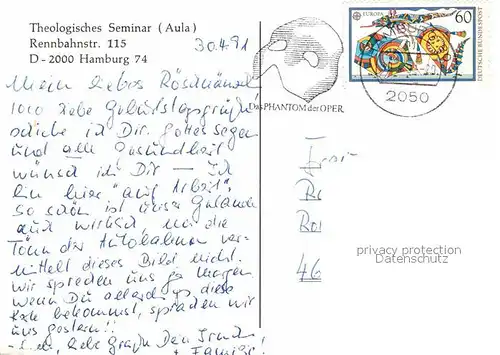 Theologisches Seminar (Aula)
Rennbahnstr. 115
D - 2000 Hamburg 74
30.4.91
Mein liebes
1000 liebe Geburtstagsgrüße
schicke ich Dir. Gottes Segen
und alle Gesundheit
wünsch ich Dir — Ich
bin hier "auf Arbeit".
So schön ist unser Gelände
auch wirklich, nur die
Töne der Autobahnen ver-
mittelt dieses Bild nicht.
Wir sprechen uns ja morgen
wenn Du allerdings diese
Karte bekommst, sprachen wir
uns gestern!!
liebe Grüße Dein
+ Familie!
Das PHANTOM der OPER
EUROPA
60
DEUTSCHE BUNDESPOST
2050
Frau
R
Ro
46
privacy protection
Datenschutz